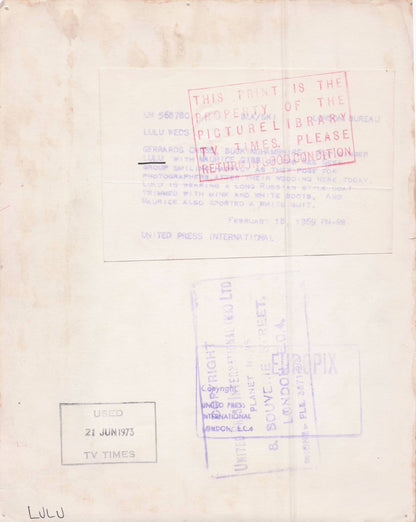 THIS PRINT IS THE
PROPERTY OF THE
PICTURE LIBRARY
TV TIMES. PLEASE
RETURN IN GOOD CONDITION
BUREAU
LULU WEDS
GERRARDS
LULU WITH MAURICE
GROUP AS THEY POSE FOR
PHOTOGRAPHERS AFTER THEIR WEDDING HERE TODAY
LULU IS WEARING A LONG RUSSIAN STYLE COAT
TRIMMED WITH MINK AND WHITE BOOTS, AND
MAURICE ALSO SPORTED A WHITE SUIT.
FEBRUARY 18, 1969
UNITED PRESS INTERNATIONAL
COPYRIGHT
UNITED PRESS INTERNATIONAL (UK) LTD
PLANET NEWS
8, BOUVERIE STREET,
LONDON, E.C.4.
EUROPIX
Copyright
UNITED PRESS
INTERNATIONAL
LONDON, E.C.4
USED
21 JUN 1973
TV TIMES
LULU